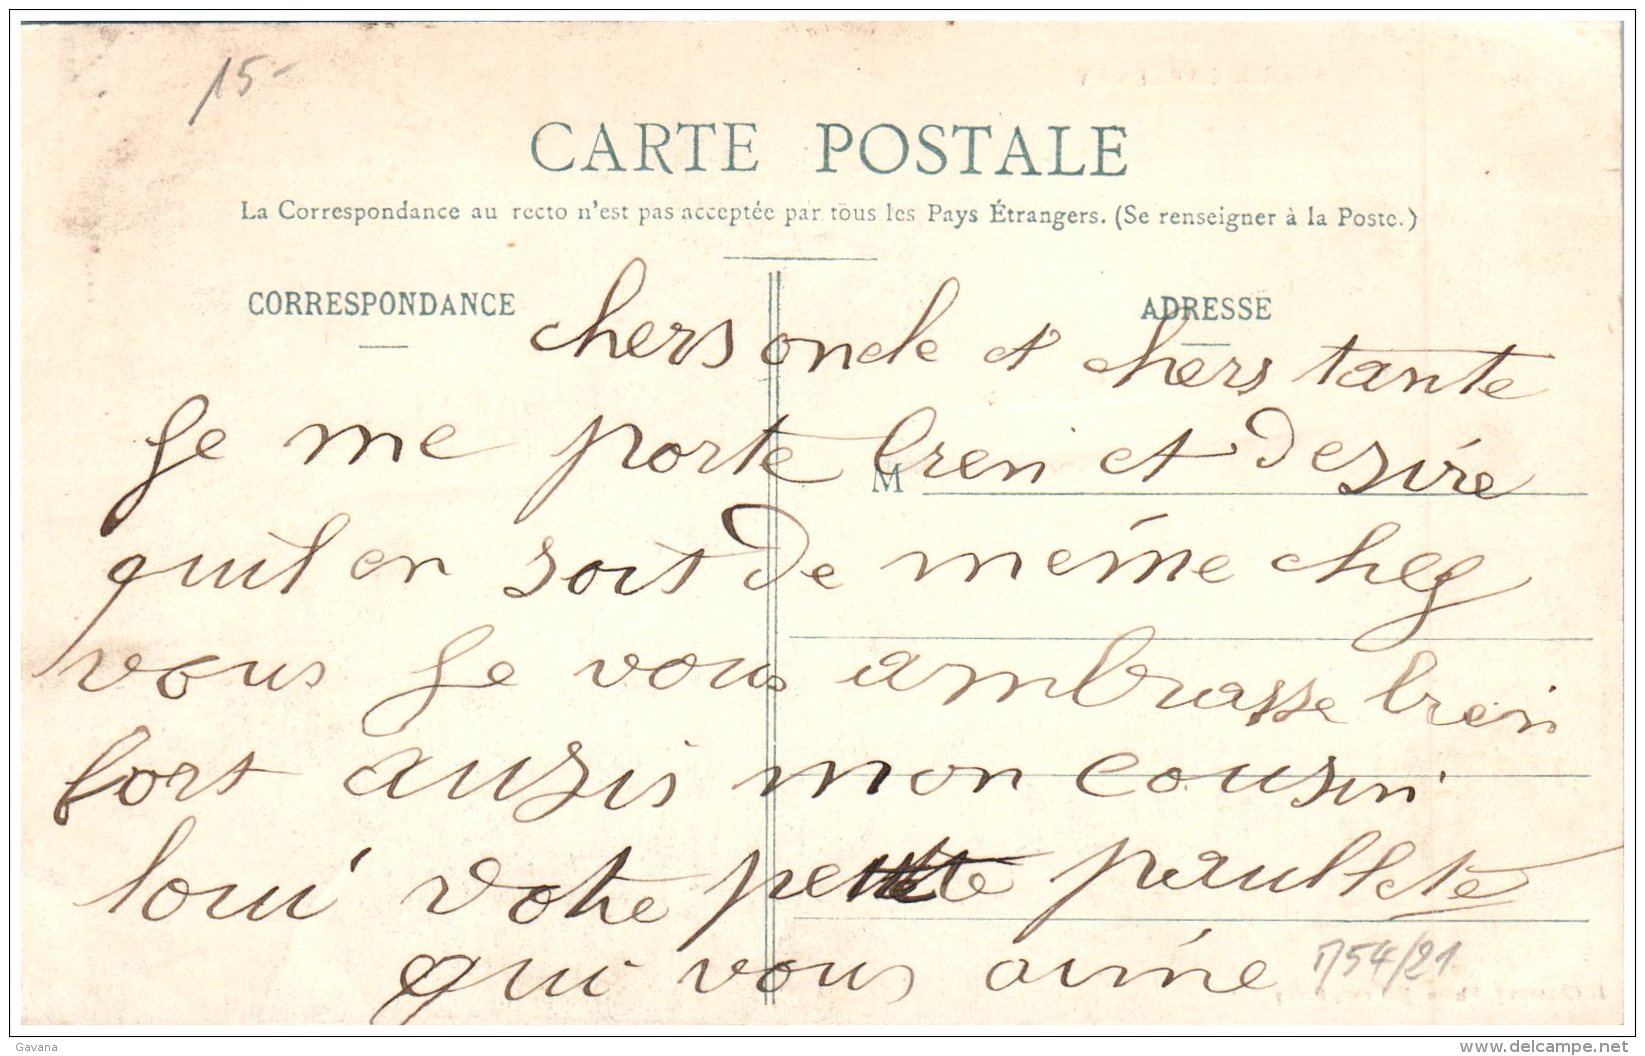 15-
CARTE POSTALE
La Correspondance au recto n'est pas acceptée par tous les Pays Étrangers. (Se renseigner à la Poste.)
CORRESPONDANCE
ADRESSE
M
chers oncle et chers tante
Je me porte bien et desire
quil en soit de même chez
vous Je vous ambrasse bien
fort ausis mon cousin
loui votre petite paullete
qui vous aime
754/21
Gavana
www.delcampe.net